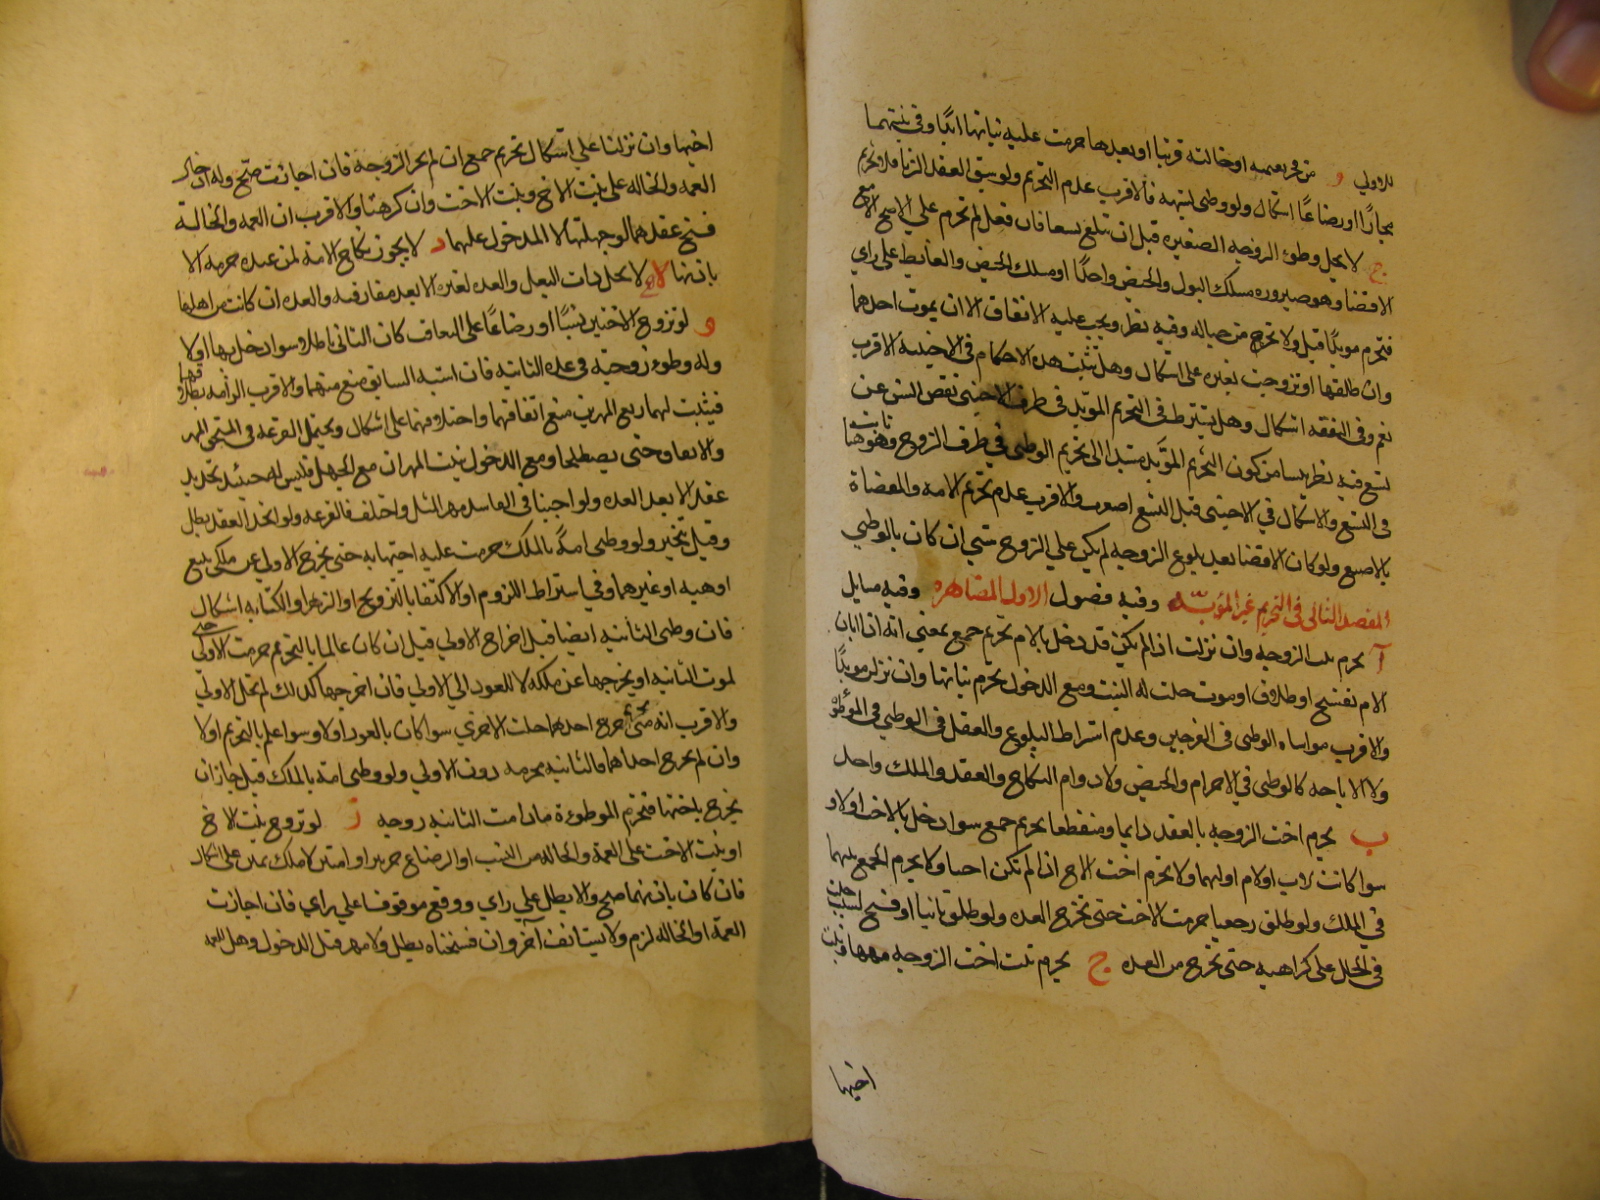 للاولي و من فجر بعمته او خالته قرنبا او بعدها حرمت عليه بناتها ابدا وفي بنتهما
مجازا او رضاعا اشكال ولو وطئ لشبهة فالاقرب عدم التحريم ولو سبق العقد الزنا فلا تحريم
ج لا يحل وطوء الزوجة الصغيرة قبل ان تبلغ تسعا فان فعل لم تحرم علي الاصح الا مع
الافضا وهو صيرورة مسلك البول والحيض واحدا او مسلك الحيض والغايط علي راي
فتحرم موبدا قيل ولا تخرج من حباله وفيه نظر ويجب عليه الانفاق الا ان يموت احدهما
وان طلقها او تزوجت بغيره على اشكال وهل تثبت هذه الاحكام في الاجنبية الاقرب
نعم وفي النفقة اشكال وهل يشترط في التحريم الموبد في طرف الاجنبي نقص السن عن
تسع فيه نظر ينشا من كون التحريم الموبد مستندا الى تحريم الوطي في طرف الزوج وهو ثابت هنا
في التسع والاشكال في الاجنبي قبل التسع اصعب والاقرب عدم تحريم الامة والمفضاة
بالاصبع ولو كان الافضا بعد بلوغ الزوجة لم يكن علي الزوج شي ان كان بالوطي
المقصد الثاني في التحريم غير الموبد وفيه فصول الاول المصاهرة وفيه مسايل
آ يحرم بنت الزوجة وان نزلت اذا لم يكن قد دخل بالام تحريم جمع بمعني انه اذا ابان
الام بفسخ او طلاق او موت حلت له البنت ومع الدخول تحرم بناتها وان نزلن موبدا
والاقرب مواساه الوطي في الفرجين وعدم اشتراط البلوغ والعقل في الوطي في الموطوة
ولا الاباحة كالوطي في الاحرام والحيض ولا دوام النكاح والعقد والملك واحد
ب يحرم اخت الزوجة بالعقد دايما ومنقطعا تحريم جمع سوا دخل بالاخت او لا و
سوا كانت لاب او لام او لهما ولا تحرم اخت الاخ اذا لم تكن اختا ولا يحرم الجمع بينهما
في الملك ولو طلق رجعيا حرمت الاخت حتي تخرج العدة ولو طلق باينا او فسخ لعيب حلت
في الحال على كراهية حتي تخرج من العدة ج يحرم بنت اخت الزوجة معها وبنت
اخيها
اخيها وان نزلتا علي اشكال تحريم جمع ان لم تجز الزوجة فان اجازت صح وله ادخال
العمة والخالة على بنت الاخ وبنت الاخت وان كرهتا والاقرب ان للعمة والخالة
فسخ عقدهما لو جهلتا لا المدخول عليهما د لا يجوز نكاح الامة لمن عنده حرمة الا
باذنها ه لا يحل ذات البعل والعدة لغيره الا بعد مفارقته والعدة ان كانت من اهلها
و لو تزوج الاختين نسبا او رضاعا على التعاقب كان الثاني باطلا سوا دخل بها او لا
وله وطوء زوجته في عدة الثانية فان اشتبه السابق منع منهما والاقرب الزامه بطلاقهما
فيثبت لهما ربع المهرين مع اتفاقهما واختلافهما على اشكال ويحتمل القرعة في المستحق المهر
والايقاف حتي يصطلحا ومع الدخول يثبت المهران مع الجهل فليس له حينئذ تجديد
عقد الا بعد العدة ولو اوجبنا في الفاسد مهر المثل واختلف فالقرعة ولو اتحد العقد بطل
وقيل يتخير ولو وطي امة بالملك حرمت عليه اختها به حتى يخرج الاولي عن ملكه ببيع
او هبة او غيرهما وفي اشتراط اللزوم او الاكتفا بالتزويج او الرهن او الكتابة اشكال
فان وطي الثانية ايضا قبل اخراج الاولي قيل ان كان عالما بالتحريم حرمت الاولي حتي
تموت الثانية او يخرجها عن ملكه لا للعود الي الاولي فان اخرجها كذلك لم تحل الاولي
والاقرب انه متي اخرج احدهما حلت الاخري سوا كان بالعود او لا وسوا علم بالتحريم او لا
وان لم يخرج احداهما فالثانية محرمة دون الاولي ولو وطي امة بالملك قيل جاز ان
يتزوج باختها فتحرم الموطوءة ما دامت الثانية زوجة ز لو تزوج بنت الاخ
او بنت الاخت على العمة والخالة من النسب او الرضاع حرتين او امتين لا ملك يمين على اشكال
فان كان باذنهما صح والا بطل علي راي ووقع موقوفا علي راي فان اجازت
العمة او الخالة لزم ولا يستانف آخر وان فسختاه بطل ولا مهر قبل الدخول وهل للعمة